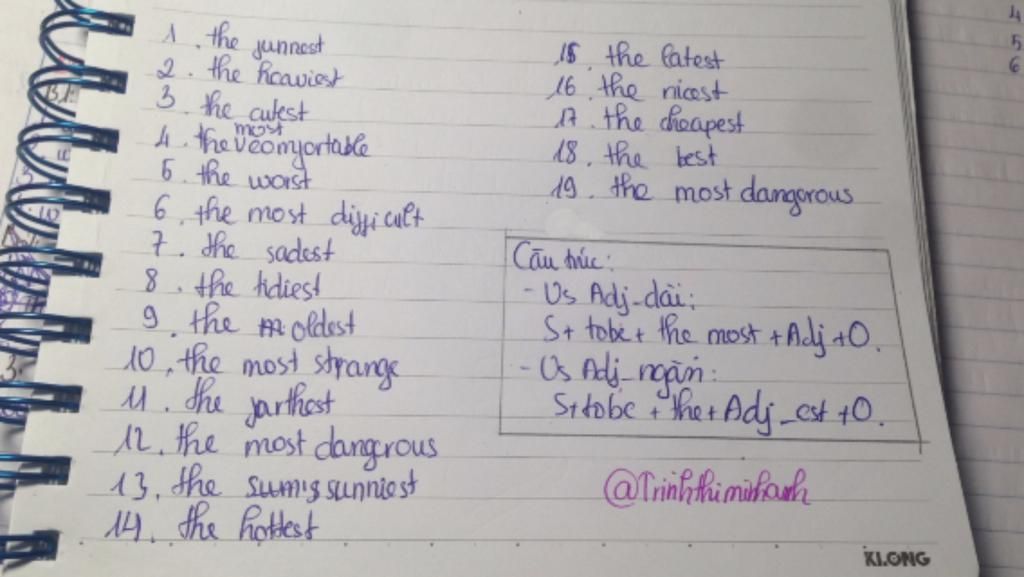 1. the junnest
2. the heaviest
3. the cutest
4. the most comjortable
5. the worst
6. the most dijjicult
7. the sadest
8. the tidiest
9. the oldest
10. the most strange
11. the jarthest
12. the most dangerous
13. the sunniest
14. the hottest
15. the latest
16. the nicest
17. the cheapest
18. the best
19. the most dangorous
Cấu trúc:
- Vs Adj_dài:
S+ tobe + the most + Adj + O.
- Vs Adj_ngắn:
S+tobe + the + Adj_est + O.
@Trinhthiminhanh
KLONG
4
5
6